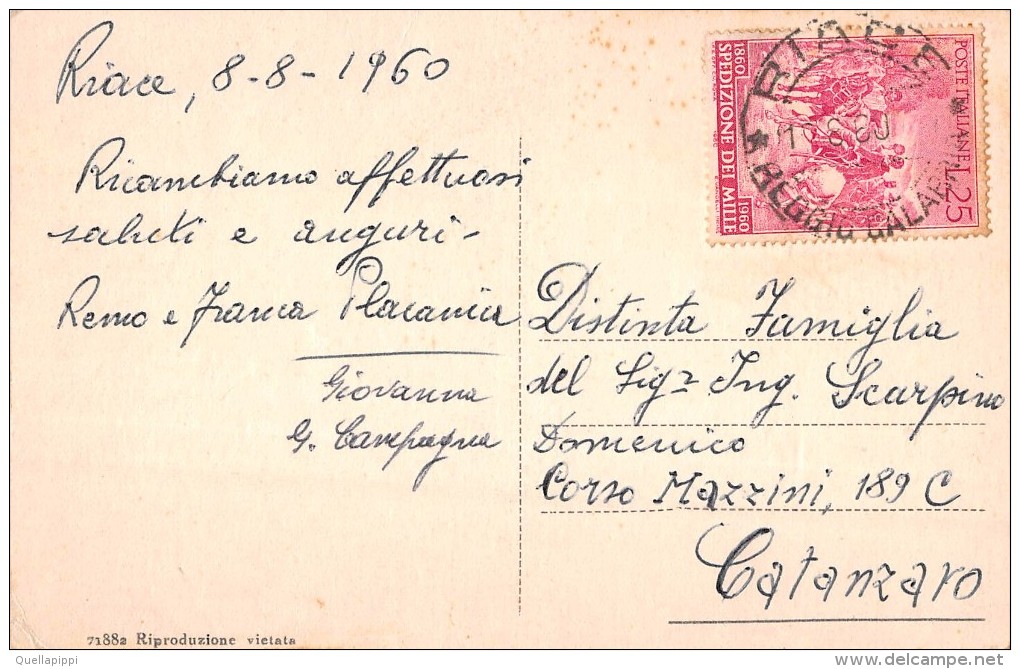 Riace, 8-8-1960
Ricambiamo affettuosi
saluti e auguri -
Remo e Franca Placanica
Giovanna
G. Campagna
71882 Riproduzione vietata
POSTE ITALIANE L. 25
1860 SPEDIZIONE DEI MILLE 1960
RIACE
* REGGIO CALAB
Distinta Famiglia
del Sigr Ing. Scarpino
Domenico
Corso Mazzini, 189 C
Catanzaro
Quellapippi
delcampe.net